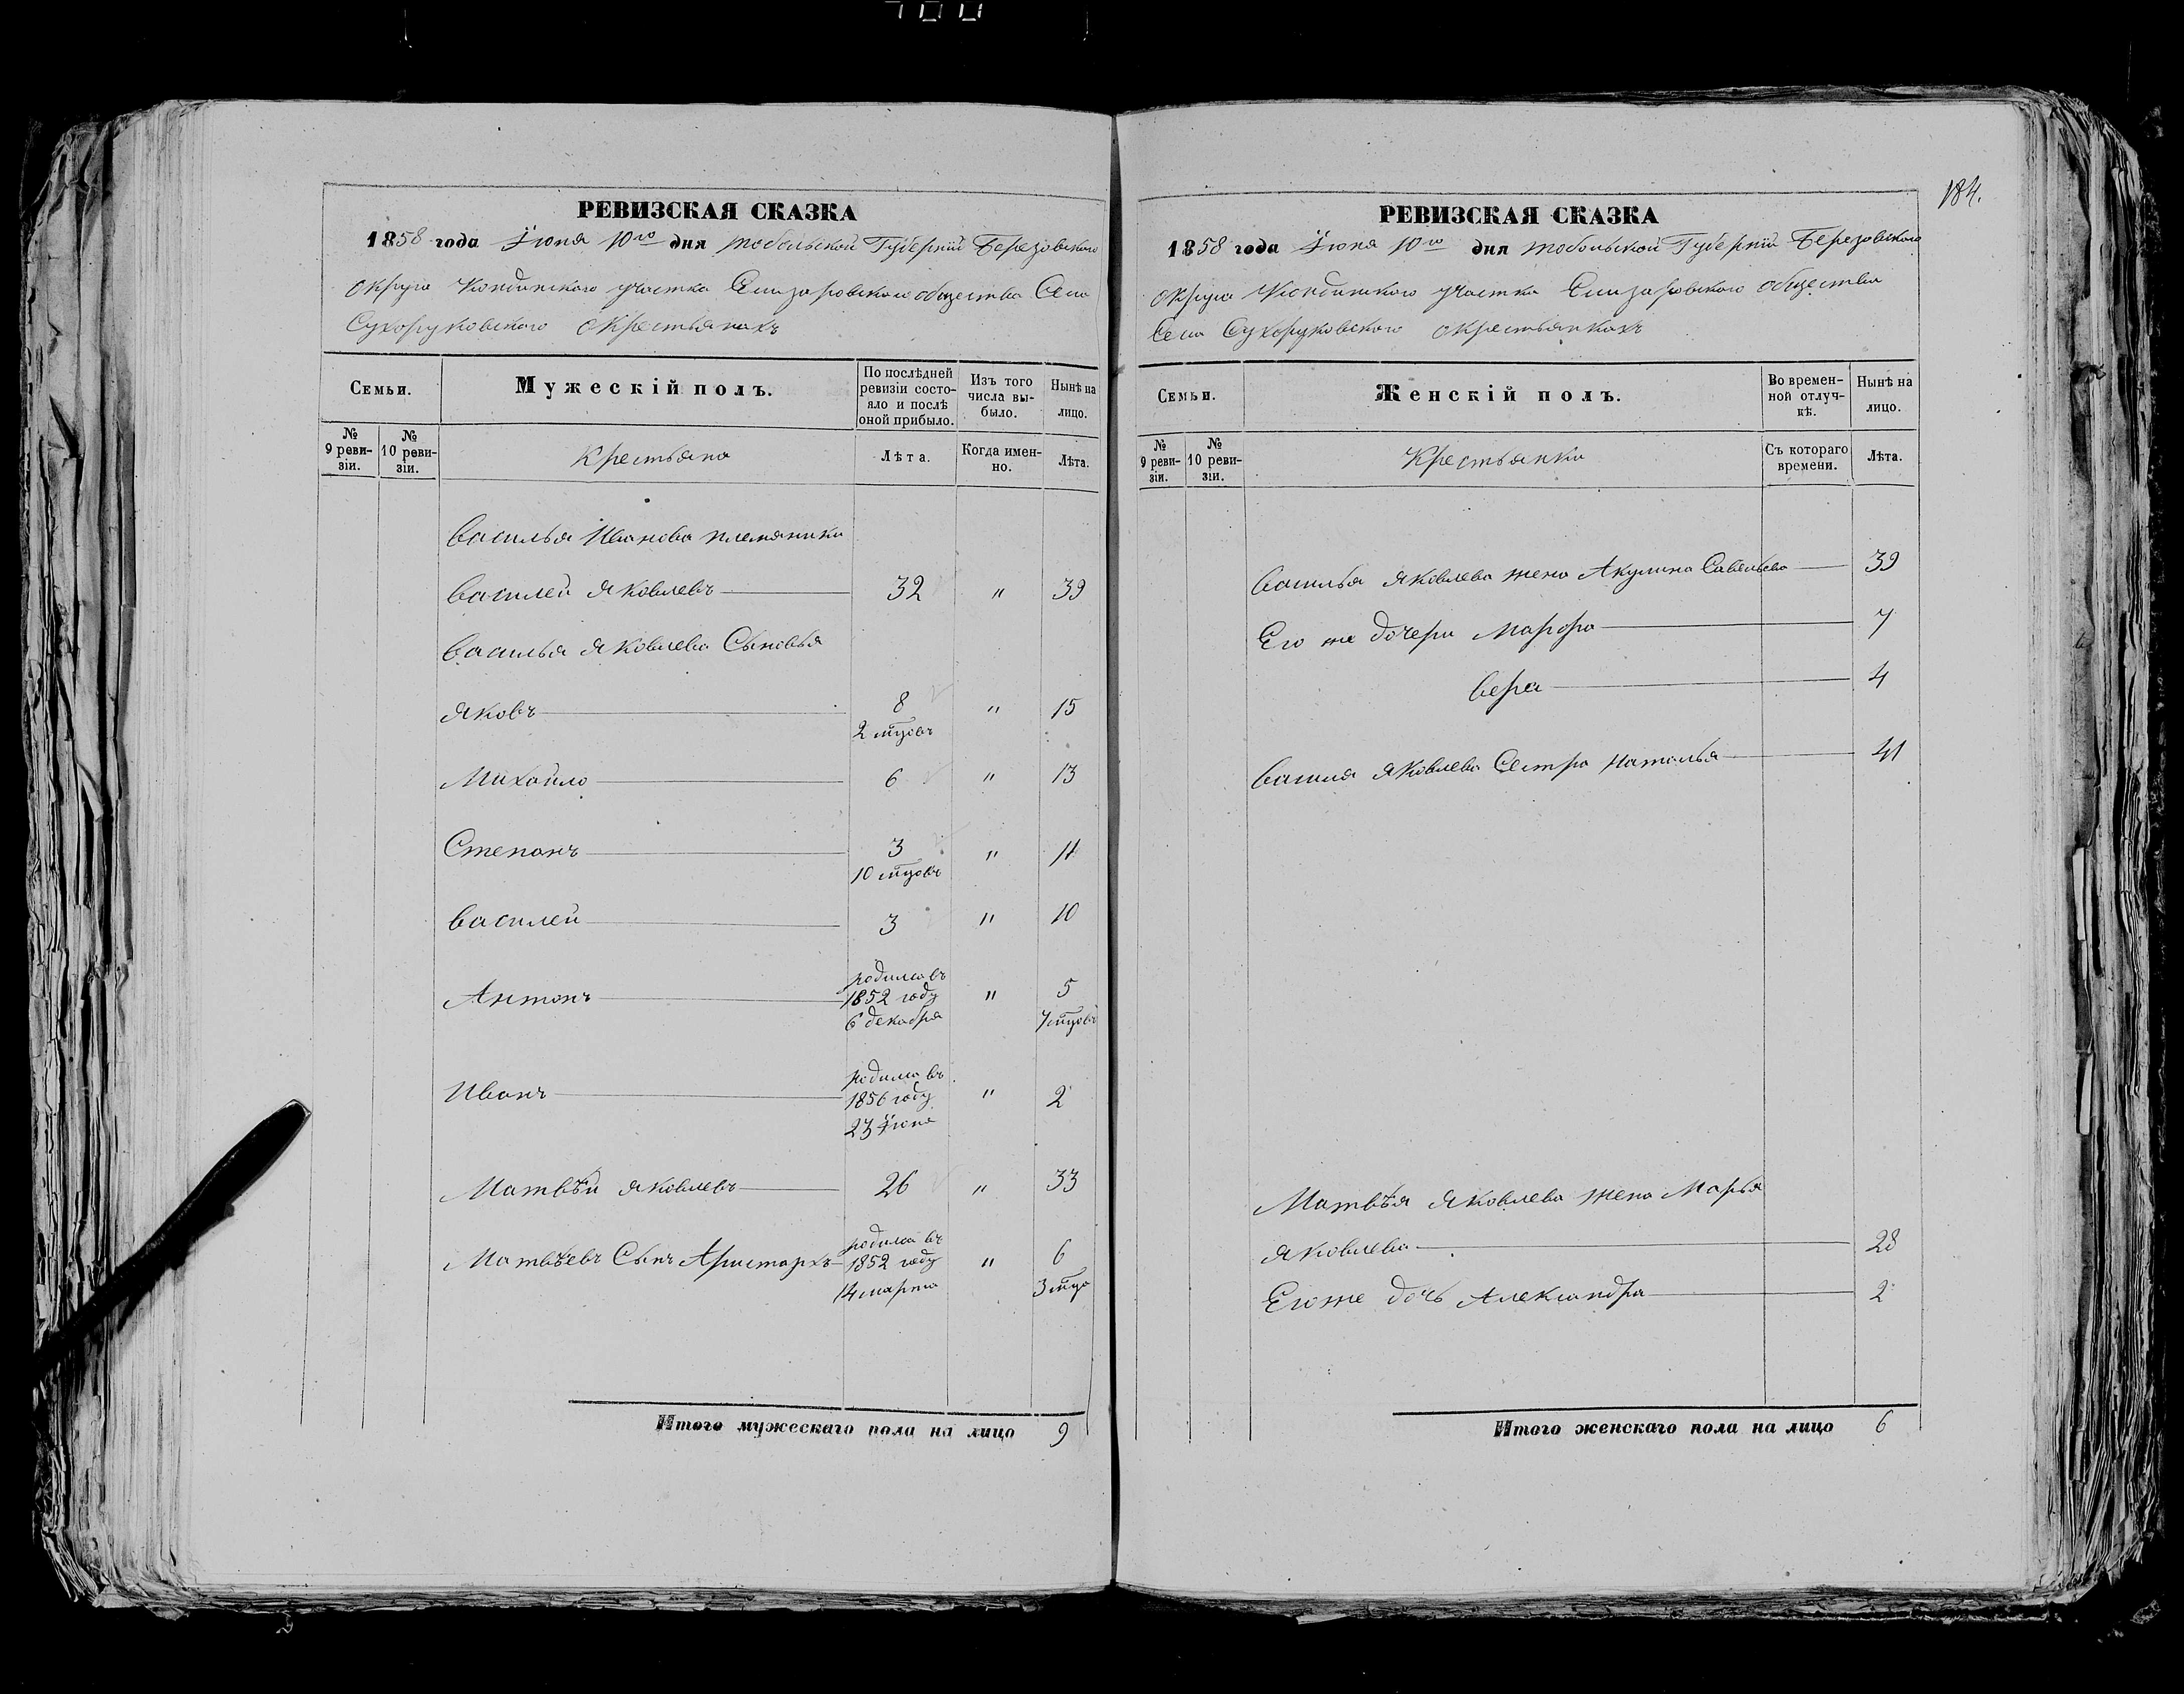 184.
РЕВИЗСКАЯ СКАЗКА
1858 года Іюня 10го дня тобольской Губерніи Березовскаго
округа Кондинского участка Елизаровского общества Села
Сухоруковского окрестьянахъ
Семьи.
Мужескій полъ.
По послѣдней ревизіи состояло и послѣ оной прибыло.
Изъ того числа выбыло.
Нынѣ на лицо.
№ 9 ревизіи.
№ 10 ревизіи.
Крестьяна
Лѣта.
Когда именно.
Лѣта.
Василья Иванова племяники
Василей Яковлевъ 32 " 39
Василья Яковлева Сыновья
Яковъ 8 " 15
2 мцовъ
Михайло 6 " 13
Степанъ 3 " 11
10 мцовъ
Василей 3 " 10
родился въ
Антонъ 1852 году " 5
6 декабря 7 мцовъ
родился въ
Иванъ 1856 году " 2
23 Іюня
Матвѣй Яковлевъ 26 " 33
родился въ
Матвѣевъ Сынъ Аристархъ 1852 году " 6
14 марта 3 мца
Итого мужескаго пола на лицо 9
РЕВИЗСКАЯ СКАЗКА
1858 года Іюня 10го дня тобольской Губерніи Березовскаго
округа Кондинского участка Елизаровского общества
Села Сухоруковского окрестьянкахъ
Семьи.
Женскій полъ.
Во временной отлучкѣ.
Нынѣ на лицо.
№ 9 ревизіи.
№ 10 ревизіи.
Крестьянки
Съ котораго времени.
Лѣта.
Василья Яковлева жена Акулина Савельева 39
Его же дочери Марфа 7
Вера 4
Василя Яковлева Сестра Наталья 41
Матвѣя Яковлева жена Марья
Яковлева 28
Его же дочь Александра 2
Итого женскаго пола на лицо 6